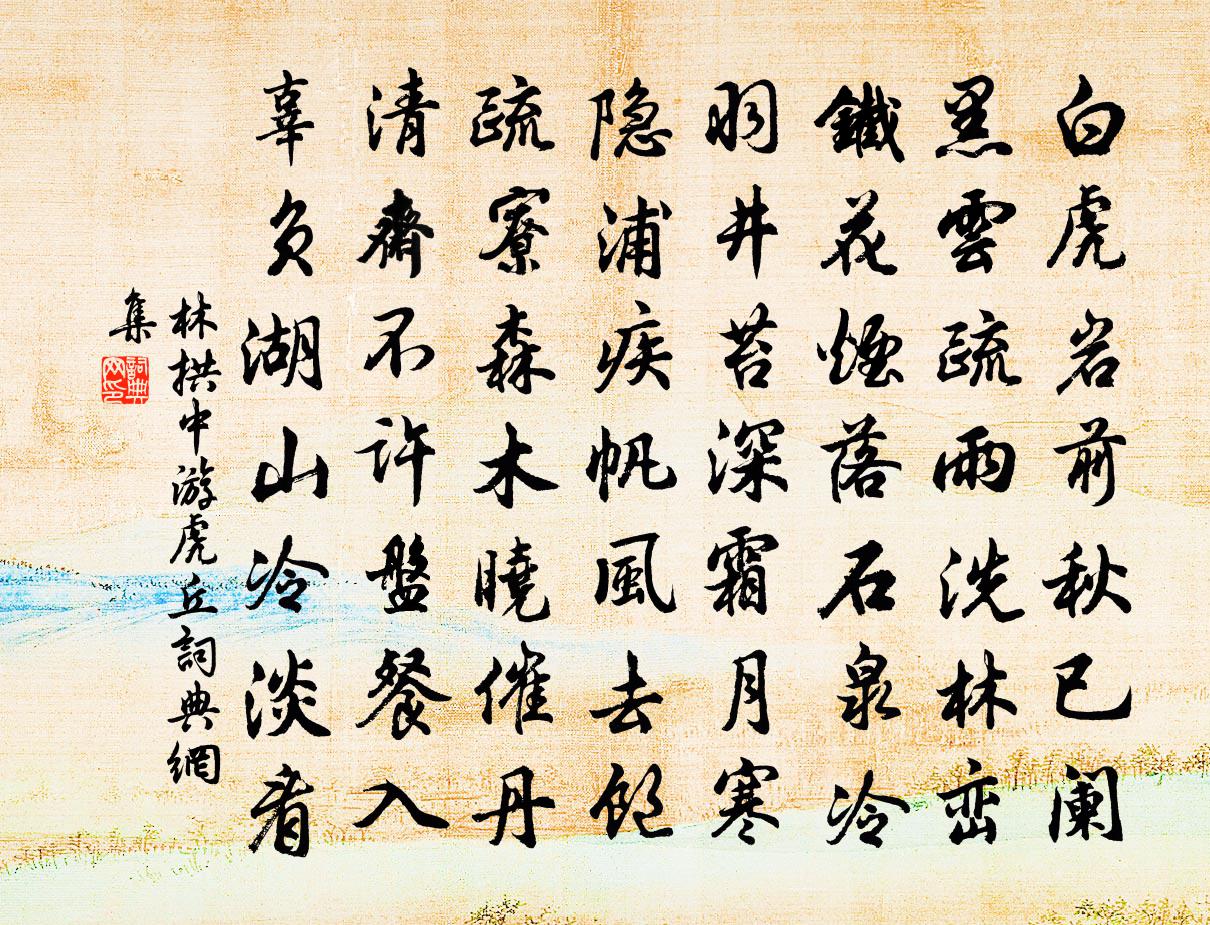 白虎岩前秋已阑
黑雲疏雨洗林峦
鐵花煙落石泉冷
羽井苔深霜月寒
隐浦疾帆風去飽
疏寮森木曉催丹
清齋不許盤餐入
辜负湖山冷淡看
林拱中游虎丘詞典網
集
詞典
网印